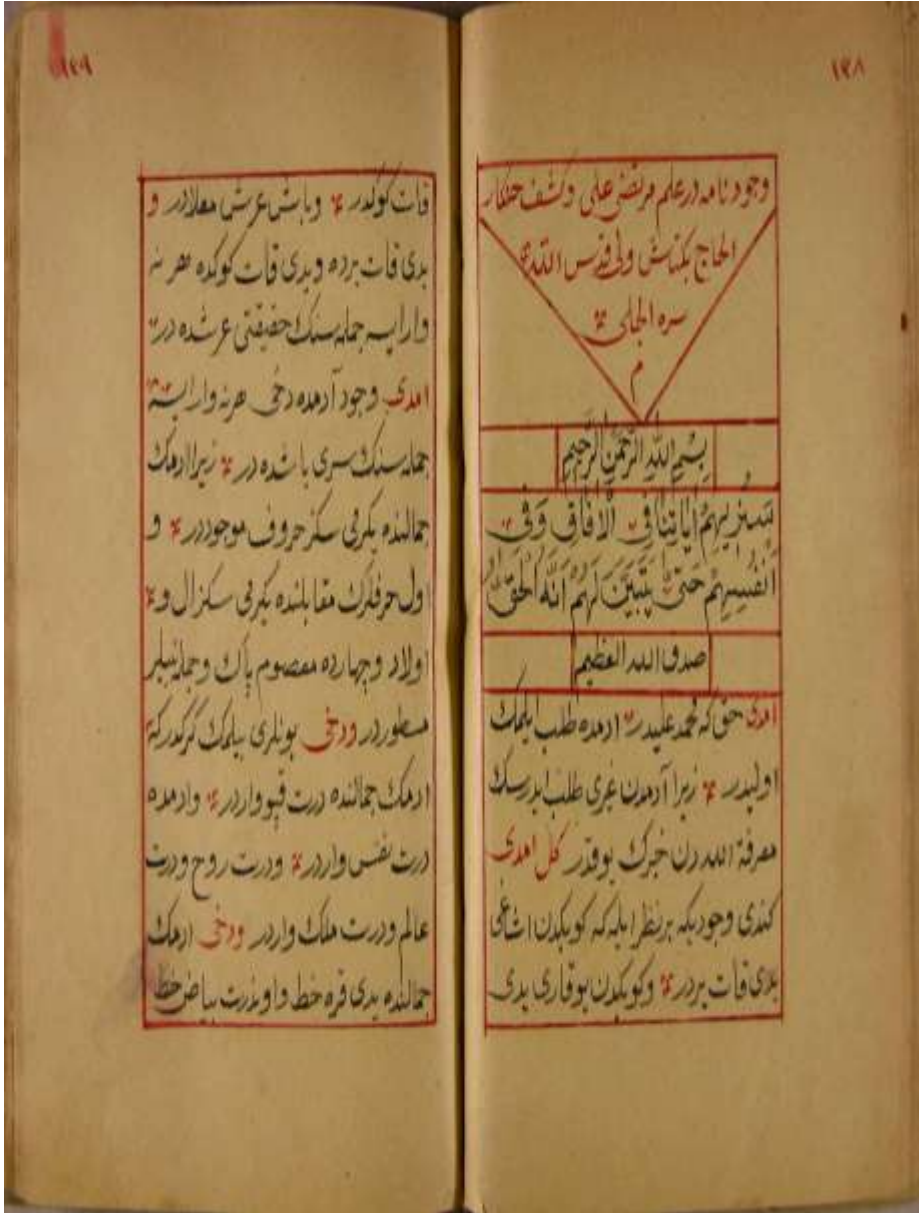 ١٣٨
وجودنامه در علم مرتضى على وكشف حنكار
الحاج بكتاش ولى قدس الله
سره الجلى
م
بِسْمِ اللهِ الرَّحْمنِ الرَّحِيمِ
سَنُرِيهِمْ اٰيَاتِنَا فِى الْاٰفَاقِ وَفِى
اَنْفُسِهِمْ حَتّٰى يَتَبَيَّنَ لَهُمْ اَنَّهُ الْحَقُّ
صدق الله العظيم
امدى حق كه محمد عليدر ادمده طلب ايلمك
اوليدر زيرا آدمدن غيرى طلب ايدرسك
معرفة الله دن خبرك يوقدر كل امدى
كندى وجوديكه بر نظر ايله كه كوبكدن اشاغى
يدى قات يردر وكوبكدن يوقارى يدى
١٣٩
قات كوكدر وباش عرش معلادر و
يدى قات يرده ويدى قات كوكده هر نه
وارايسه جمله سنك حقيقتى عرشده در
امدى وجود آدمده دخى هرنه وارايسه
جمله سنك سرى باشده در زيرا ادمك
جمالنده يكرمى سكز حروف موجوددر و
اول حرفلرك مقابلنده يكرمى سكز ال و
اولاد وچهارده معصوم پاك وجمله نبيلر
مسطوردر ودخى بونلرى بيلمك كركدركه
ادمك جمالنده درت قپو واردر وادمده
درت نفس واردر ودرت روح ودرت
عالم ودرت ملك واردر ودخى ادمك
جمالنده يدى قره خط واوندرت بياض خط